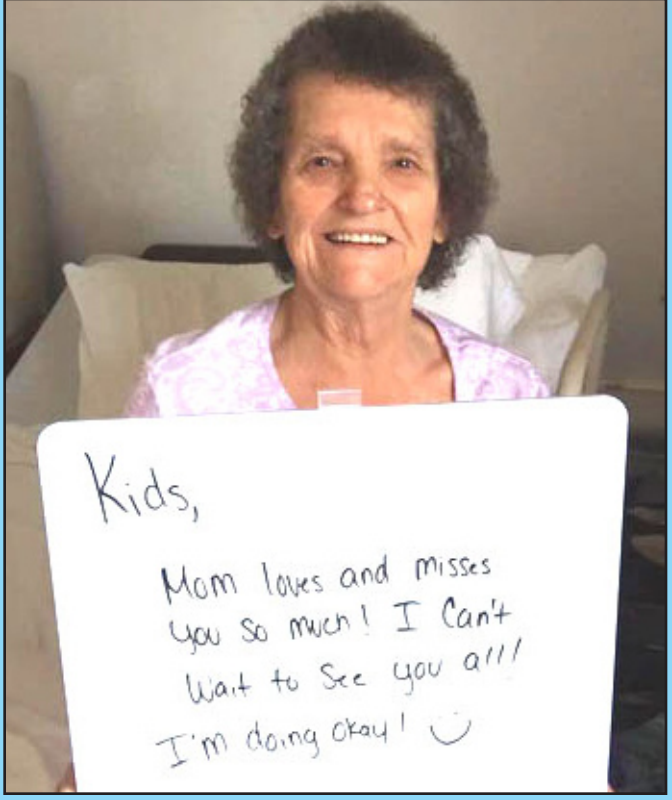 Kids,
Mom loves and misses
you so much! I Can't
Wait to See you all!
I'm doing okay! :)